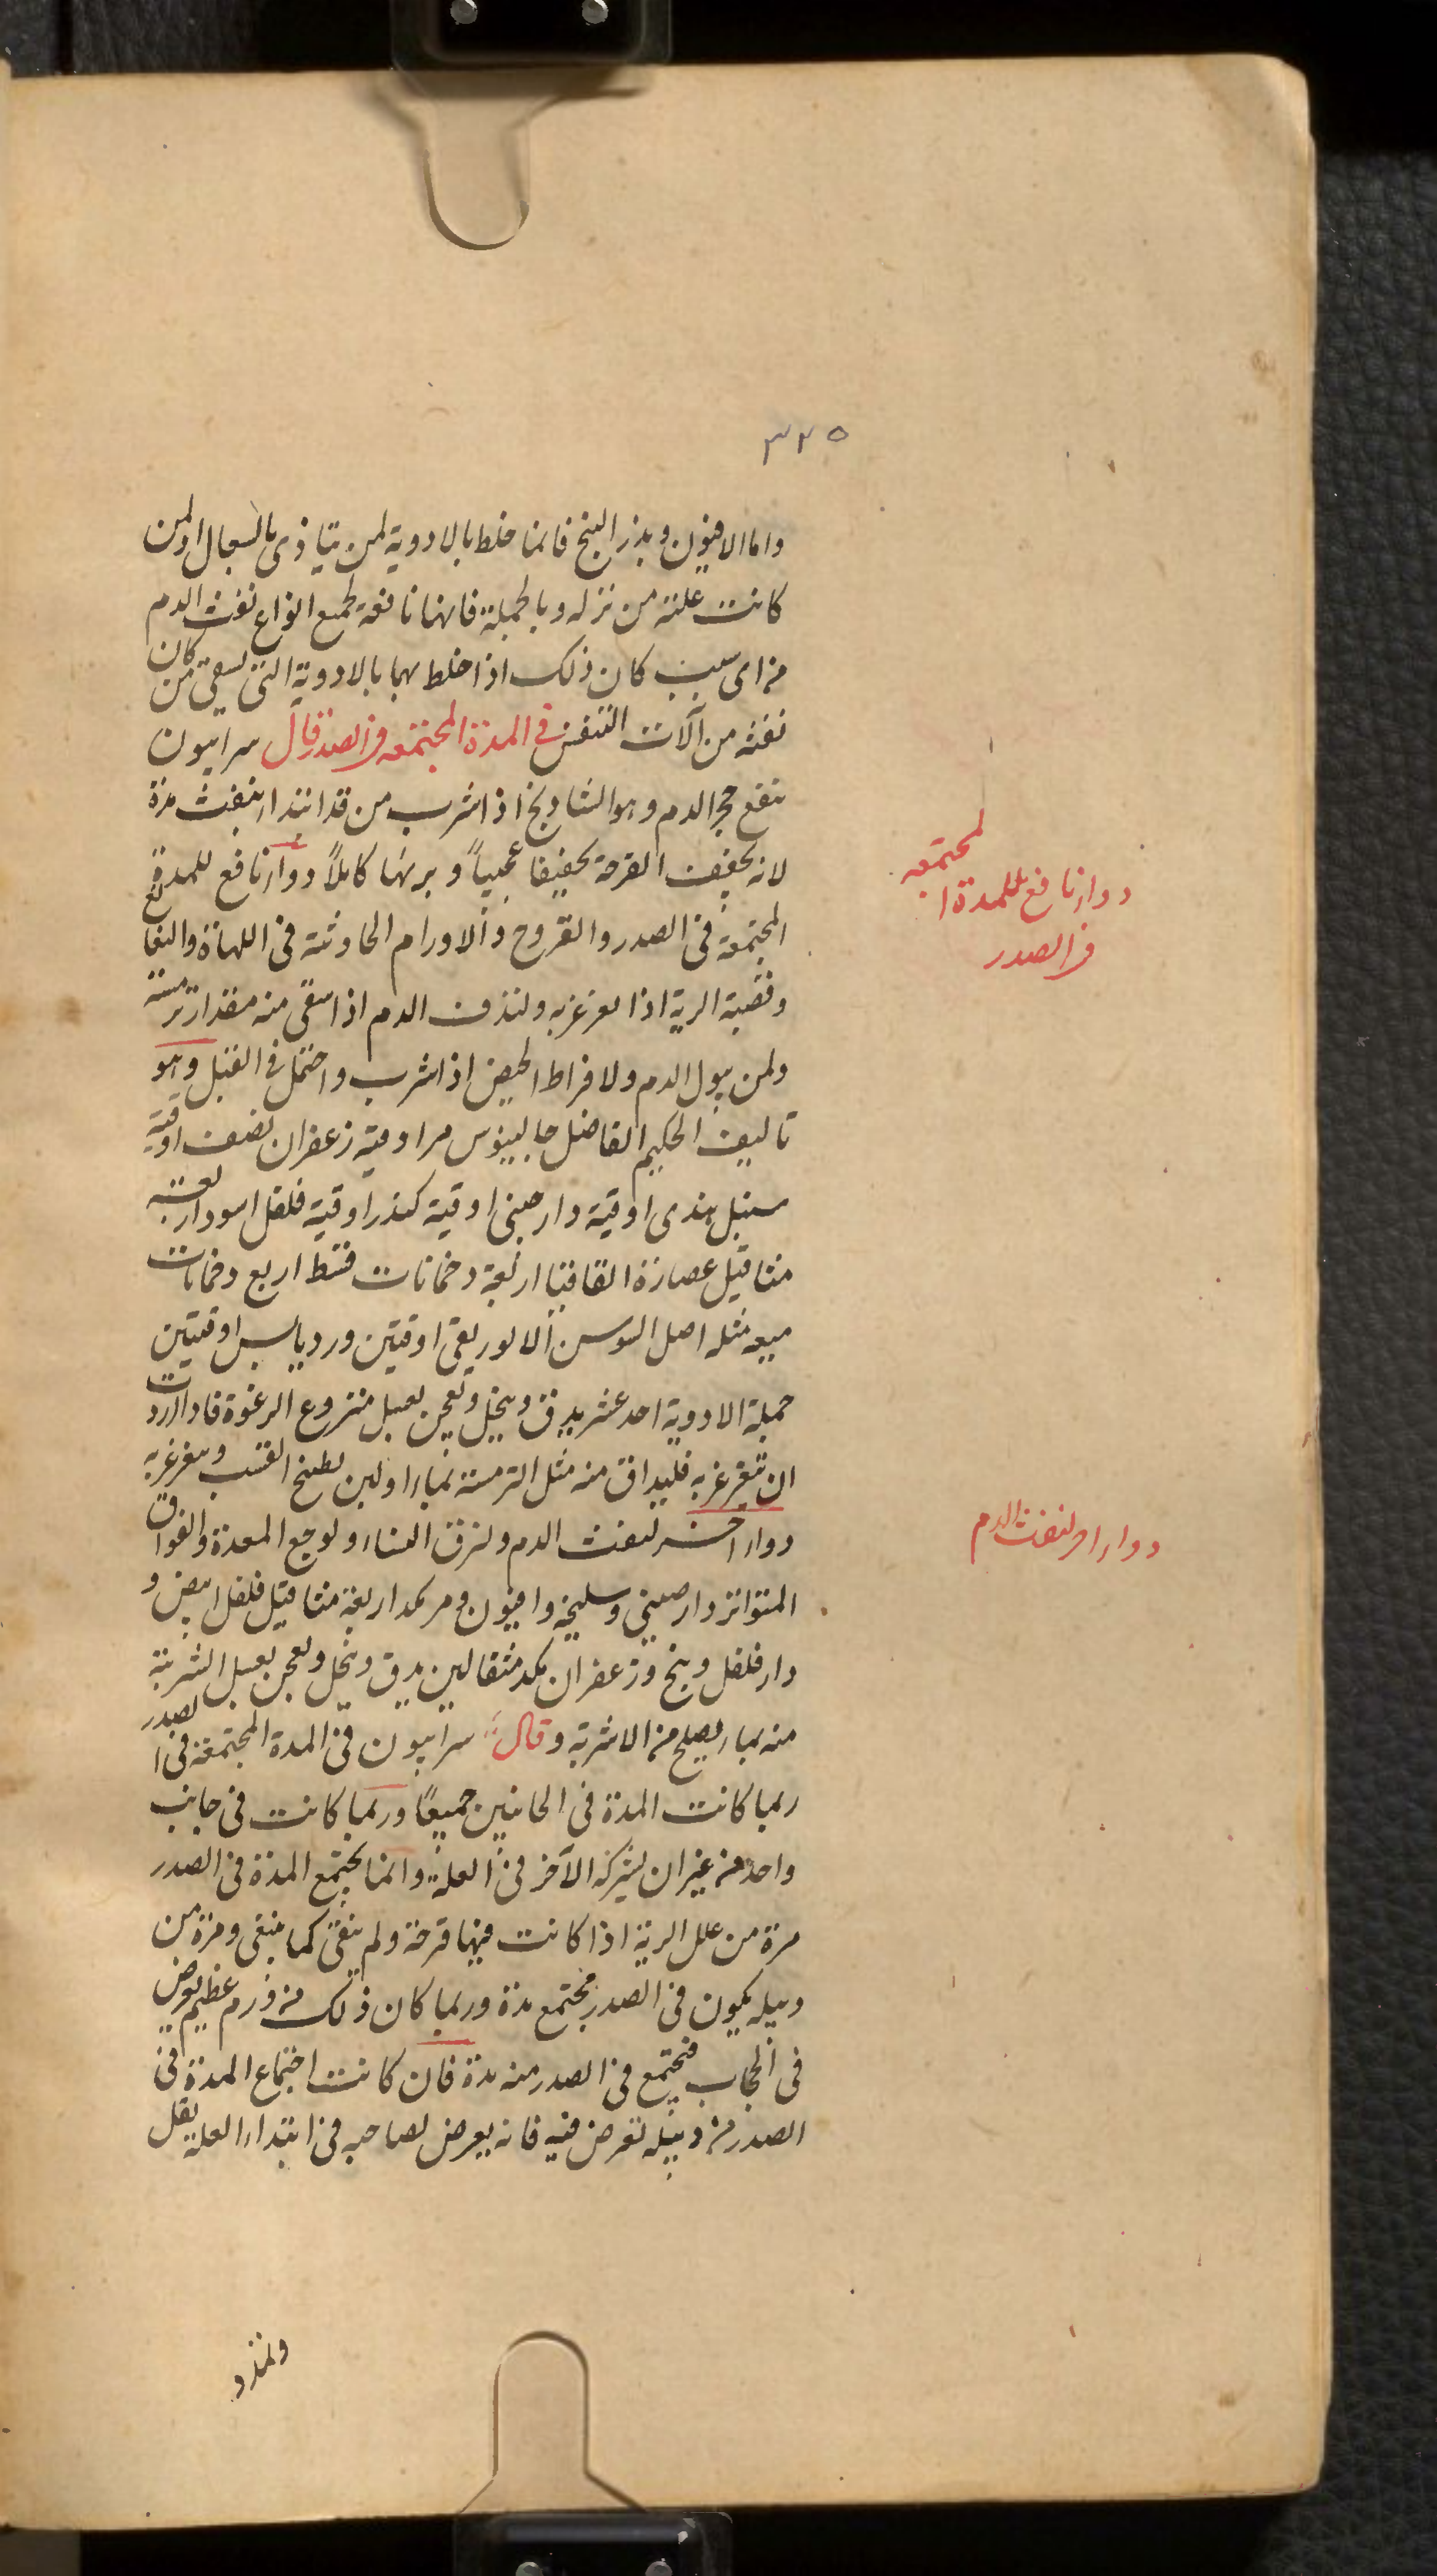 ٣٢٥
واما الافيون وبذر البنج فانما خلط بالادوية لمن يتاذى بالسعال او لمن
كانت علته من نزله وبالجملة فانها نافعة لجميع انواع نفث الدم
من اى سبب كان ذلك اذا خلط بهما بالادوية التى يسقى من كان
نفثه من آلات التنفس فى المدة المجتمعه فى الصدر قال سرابيون
ينفع حجر الدم وهو الشاذنج اذا شرب من قد ابتداء بنفث مدة
لانه يجفف القرحة تجفيفا عجيباً ويبرئها كاملاً دواء نافع للمدة
المجتمعة فى الصدر والقروح والاورام الحادثة فى اللهاة والنغانغ
وقصبة الرية اذا تغرغر به ولنذف الدم اذا سقى منه مقدار ترمسة
ولمن يبول الدم ولافراط الحيض اذا شرب واحتمل فى القبل وهو
تاليف الحكيم الفاضل جالينوس مر اوقية زعفران نصف اوقية
سنبل هندى اوقية دارصينى اوقية كندر اوقية فلفل اسود اربعة
مثاقيل عصارة القاقيا اربعة دخمانات قسط اربع دخمانات
ميعه مثله اصل السوسن الالوريقى اوقيتين ورد يابس اوقيتين
جملة الادوية احد عشر يدق وينخل ويعجن بعسل منزوع الرغوة فاذا اردت
ان تتغرغر به فليداف منه مثل الترمسة بماء او لبن بطبيخ القسب ويتغرغر به
دواء اخر لنفث الدم ولنزف النساء ولوجع المعدة والفواق
المتواتر دارصينى وسليخه وافيون ومر بكد اربعة مثاقيل فلفل ابيض و
دارفلفل وبنج وزعفران بكد مثقالين يدق وينخل ويعجن بعسل الشربة
منه بماء يصلح من الاشربة وقال سرابيون فى المدة المجتمعة فى الصدر
ربما كانت المدة فى الجانبين جميعًا وربما كانت فى جانب
واحد من غير ان يشركه الآخر فى العلة وانما يجتمع المدة فى الصدر
مرة من علل الرية اذا كانت فيها قرحة ولم ينقى كما ينبغى ومرة من
دبيله يكون فى الصدر فيجتمع مدة وربما كان ذلك من ورم عظيم يعرض
فى الحجاب فيجتمع فى الصدر منه مدة فان كانت اجتماع المدة فى
الصدر من دبيله تعرض فيه فانه يعرض لصاحبه فى ابتداء العلة ثقل
دواء نافع للمدة المجتمعه
فى الصدر
دواء اخر لنفث الدم